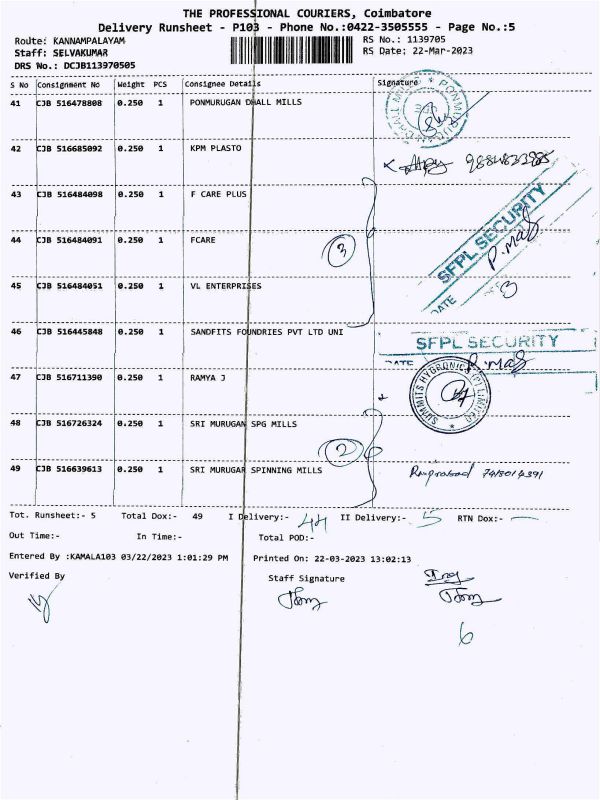 THE PROFESSIONAL COURIERS, Coimbatore
Delivery Runsheet - P103 - Phone No.:0422-3505555 - Page No.:5
Route: KANNAMPALAYAM RS No.: 1139705
Staff: SELVAKUMAR RS Date: 22-Mar-2023
DRS No.: DCJB113970505
S No Consignment No Weight PCS Consignee Details Signature
41 CJB 516478808 0.250 1 PONMURUGAN DHALL MILLS
42 CJB 516685092 0.250 1 KPM PLASTO
43 CJB 516484098 0.250 1 F CARE PLUS
SFPL SECURITY
P. Mag
44 CJB 516484091 0.250 1 FCARE
3
45 CJB 516484051 0.250 1 VL ENTERPRISES
DATE
46 CJB 516445848 0.250 1 SANDFITS FOUNDRIES PVT LTD UNI
SFPL SECURITY
DATE
47 CJB 516711390 0.250 1 RAMYA J
SUMMITS HYGRONICS (P) LIMITED
48 CJB 516726324 0.250 1 SRI MURUGAN SPG MILLS
2
49 CJB 516639613 0.250 1 SRI MURUGAN SPINNING MILLS
Tot. Runsheet:- 5 Total Dox:- 49 I Delivery:- 44 II Delivery:- 5 RTN Dox:- —
Out Time:- In Time:- Total POD:-
Entered By :KAMALA103 03/22/2023 1:01:29 PM Printed On: 22-03-2023 13:02:13
Verified By Staff Signature
6